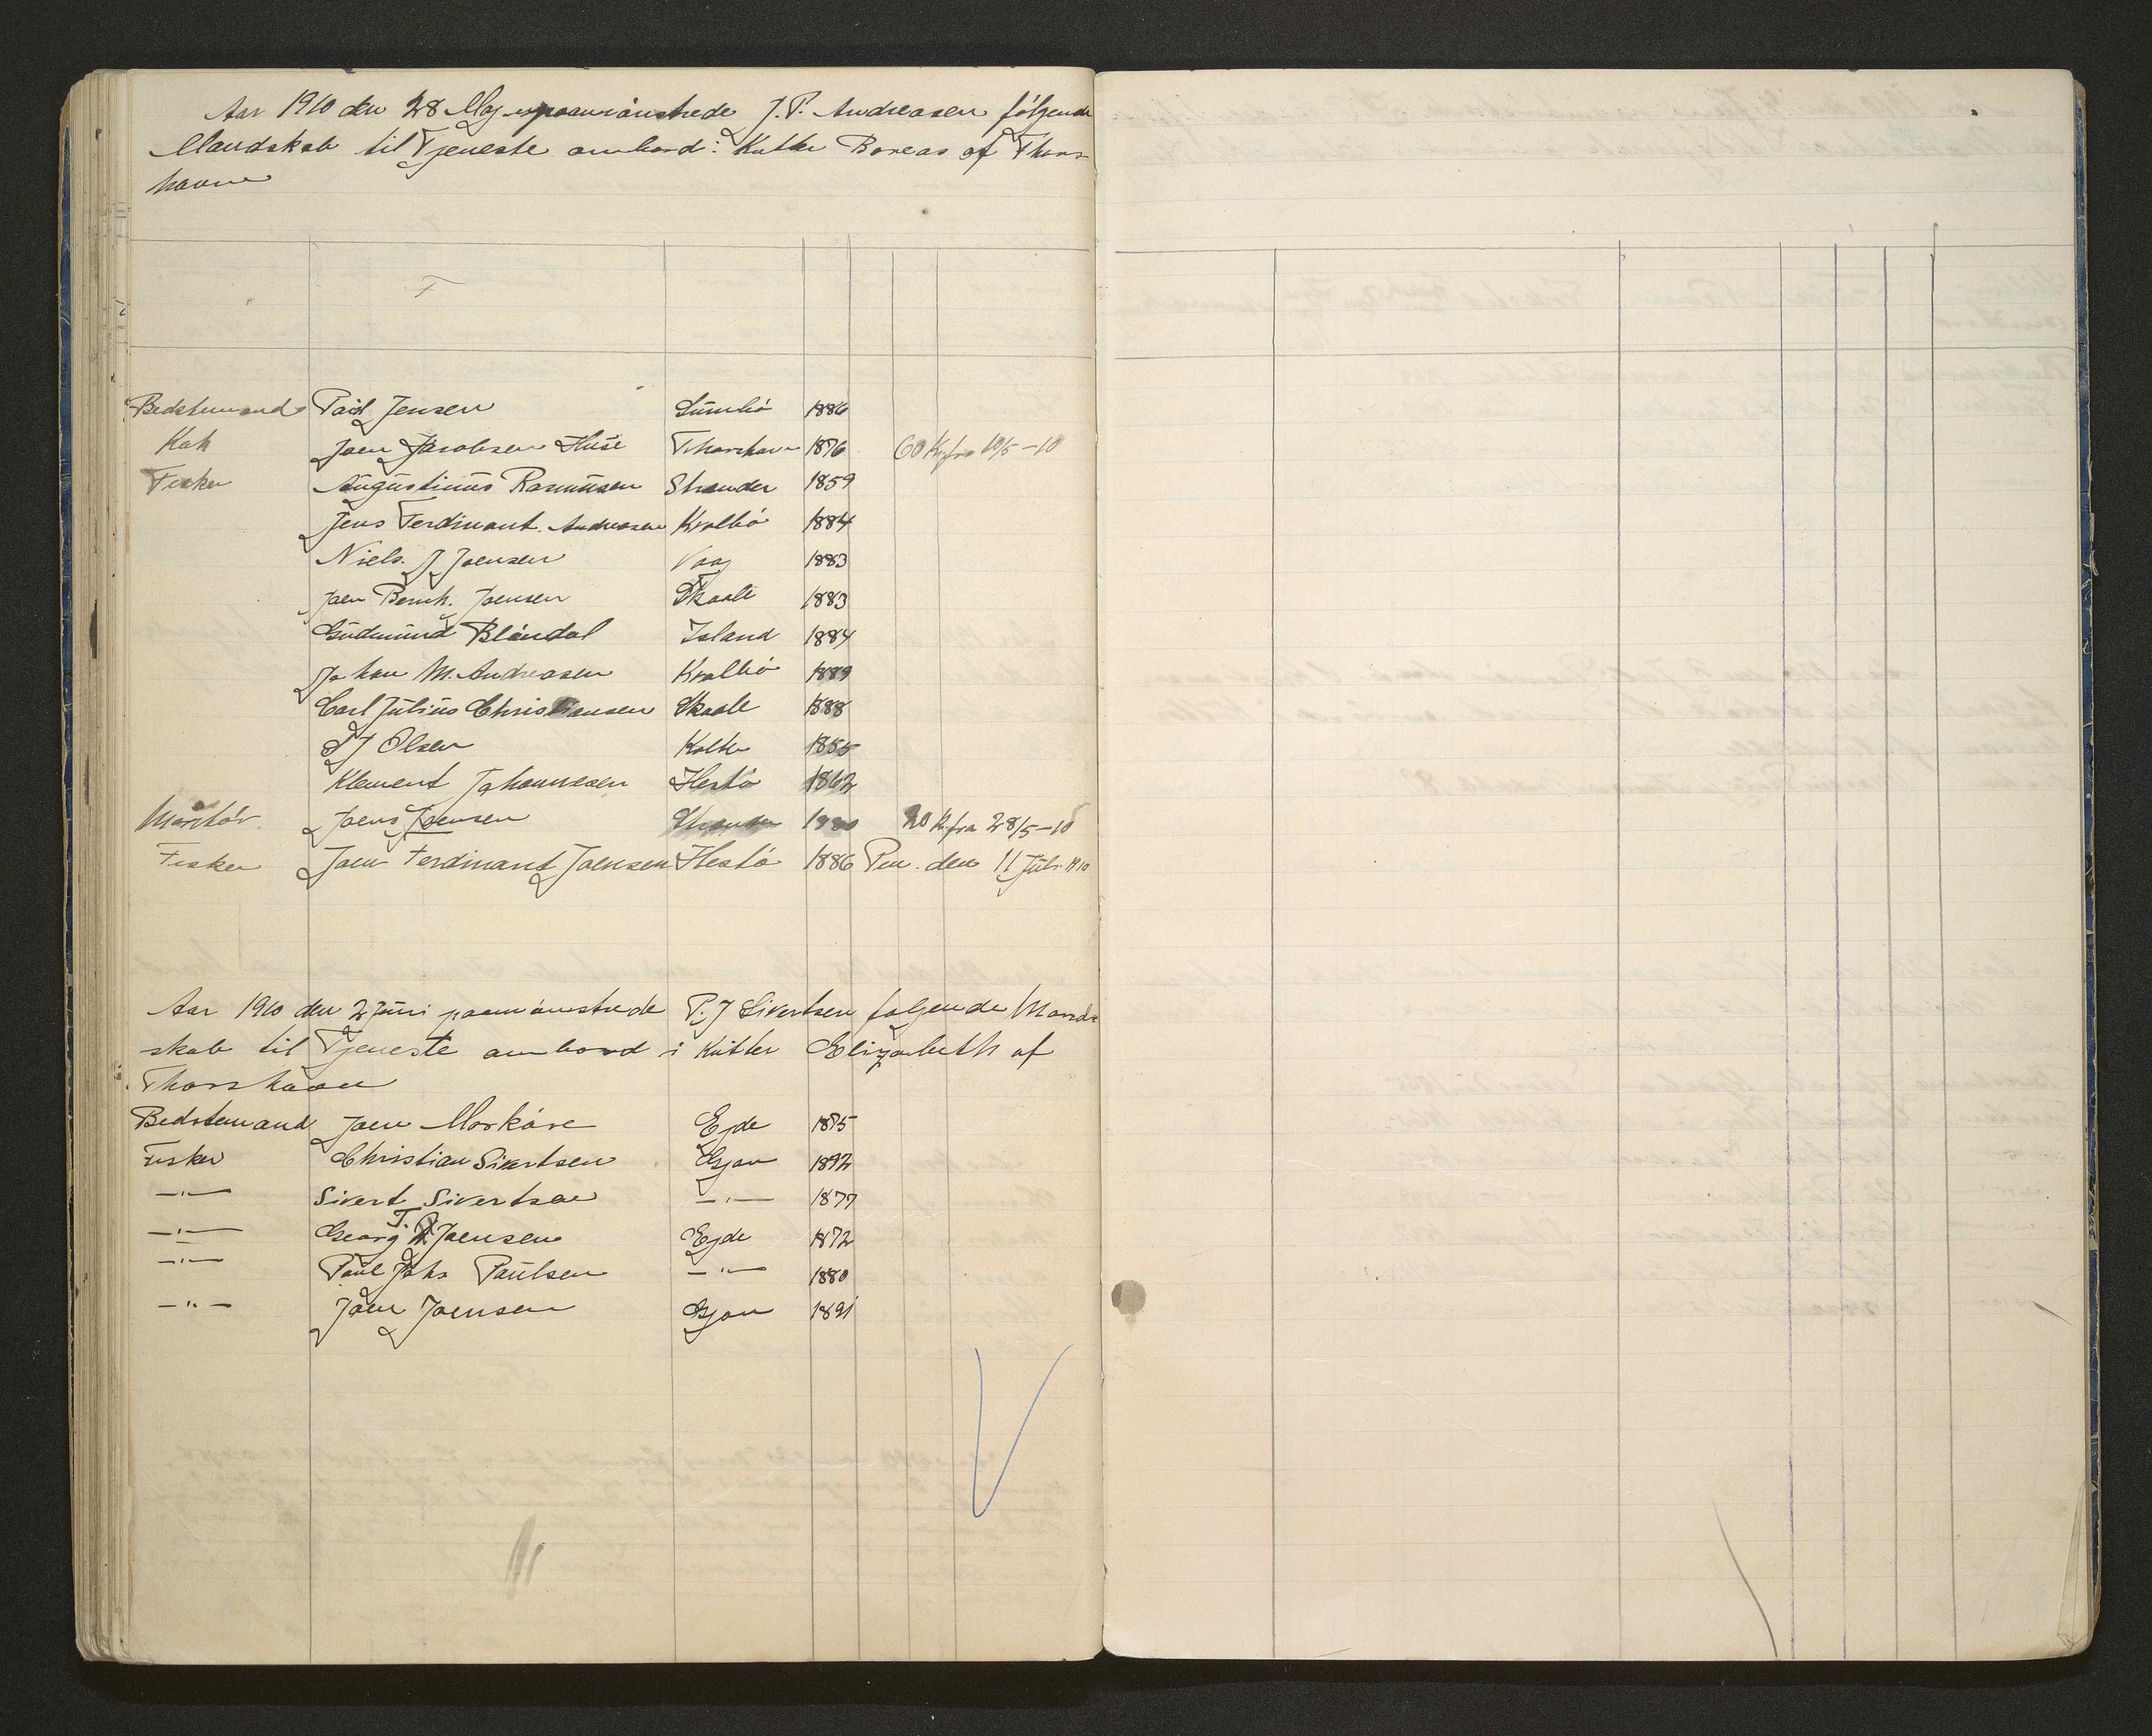 Aar 1910 den 28 Maj paamönstrede J. P. Andreasen følgende
Mandskab til Tjeneste ombord i Kutter Boreas af Thors-
havn
Bedstemand Paul Jensen Sumbö 1886
Kok Joen Jacobsen Huse Thorshavn 1876 60 Kr fra 10/5-10
Fisker Augustinus Rasmussen Strender 1859
Jens Ferdinant. Andreasen Kvalbö 1884
Niels. J Joensen Vaag 1883
Joen Bernh. Joensen Skaale 1883
Gudmund Blöndal Island 1884
Johan M. Andreasen Kvalbö 1889
Carl Julius Christiansen Skaale 1888
J Olsen Kolter
Klement Johannesen Hestö 1862
Joens Joensen 20 Kr fra 28/5-10
Fisker Joen Ferdinand Joensen Hestö 1886 den 11 Juli 1910
Aar 1910 den 2 Juni paamönstrede P. J Sivertsen folgende Mand-
skab til Tjeneste ombord i Kutter Elizabeth af
Thorshavn
Bedstemand Joen Morköre Ejde 1875
Fisker Christian Sivertsen Gjov 1892
-"- Sivert Sivertsen -"- 1877
-"- Georg T. Joensen Ejde 1872
-"- Paul Johs Paulsen -"- 1880
-"- Joen Joensen Gjov 1891